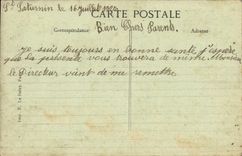 St Saturnin le 16 juillet 1920
CARTE POSTALE
Correspondance
Adresse
Bien Chers Parents.
Je suis toujours en bonne santé j'espère
que la présente vous trouvera de même Monsieur
le Directeur vient de me remettre